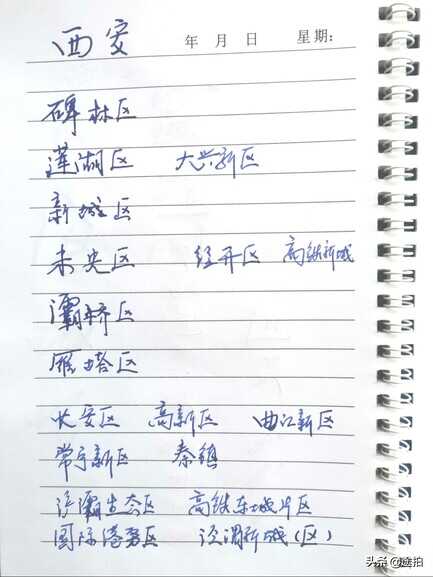 西安 年 月 日 星期:
碑林区
莲湖区 大兴新区
新城区
未央区 经开区 高铁新城
灞桥区
雁塔区
长安区 高新区 曲江新区
常宁新区 秦镇
浐灞生态区 高铁东城片区
国际港务区 泾渭新城(区)
头条@途拍